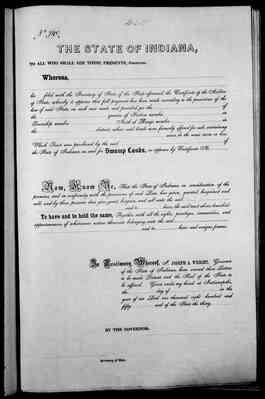 THE STATE OF INDIANA,
TO ALL WHO SHALL SEE THESE PRESENTS, GREETING:
Whereas,
ha filed with the Secretary of State of the State aforesaid, the Certificate of the Auditor
of State, whereby it appears that full payment has been made according to the provisions of the
law of said State in such case made and provided, for the of
the quarter of Section number in
Township number of Range number in
the district, where said lands were formerly offered for sale, containing
acres, be the same more or less.
Which Tract was purchased by the said of
the State of Indiana as and for Swamp Lands, as appears by Certificate No.
Now, Know Ye, That the State of Indiana in consideration of the
premises, and in conformity with the provisions of said Law, has given, granted, bargained and
sold, and by these presents does give, grant, bargain, and sell unto the said
and to heirs, the said tract above described:
To have and to hold the same, Together with all the rights, privileges, immunities, and
appurtenances of whatsoever nature thereunto belonging unto the said
and to heirs and assigns forever.
In Testimony Whereof, I, JOSEPH A. WRIGHT, Governor
of the State of Indiana, have caused these Letters
to be made Patent, and the Seal of the State to
be affixed. Given under my hand at Indianapolis,
the day of in the
year of our Lord one thousand eight hundred and
fifty and of the State the
BY THE GOVERNOR:
Secretary of State.